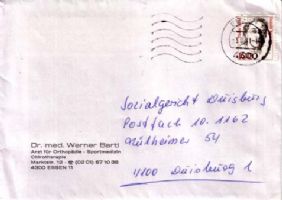 Dr. med. Werner Bartl
Arzt für Orthopädie - Sportmedizin
Chirotherapie
Marktstr. 13 · ☎ (02 01) 67 10 36
4300 ESSEN 11
Sozialgericht Duisburg
Postfach 10 11 62
Mülheimer 54
4100 Duisburg 1